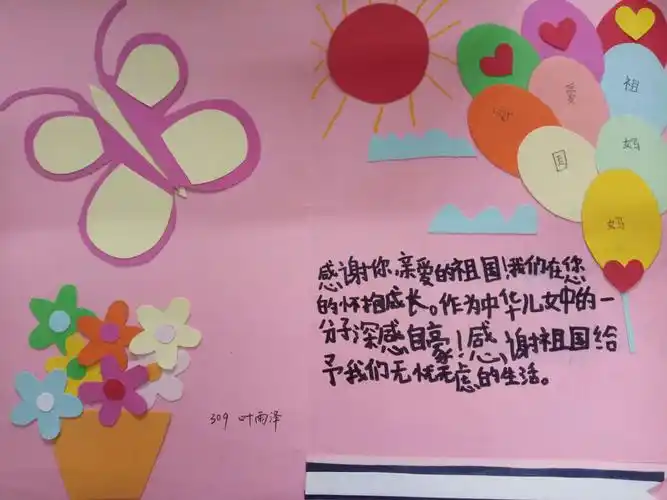 爱
祖
国
妈
妈
感谢你,亲爱的祖国!我们在您
的怀抱成长。作为中华儿女中的一
分子深感自豪!感谢祖国给
予我们无忧无虑的生活。
309 叶雨泽